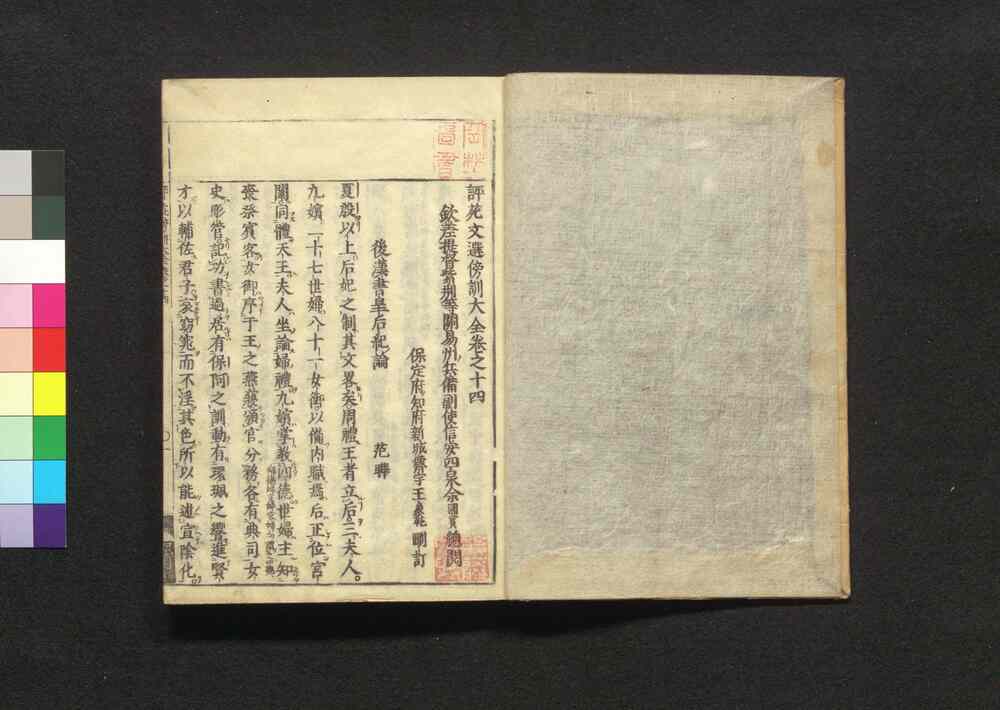 評苑文選傍訓大全卷之十四
欽差提督紫荊等關易州兵備副使信安四泉余國賓總閱
保定府知府新城霽宇王象乾刪訂
後漢書皇后紀論
范曄
夏殷以上后妃之制其文畧矣周禮王者立后三夫人。
九嬪二十七世婦八十一女御以備内職焉后正位宮
闈同體天王夫人坐論婦禮九嬪掌敎四德世婦主知
喪祭賓客女御序于王之燕寢頒官分務各有典司女
史彤管記功書過居有保阿之訓動有環珮之響進賢
才以輔佐君子哀窈窕而不淫其色所以能述宣陰化。